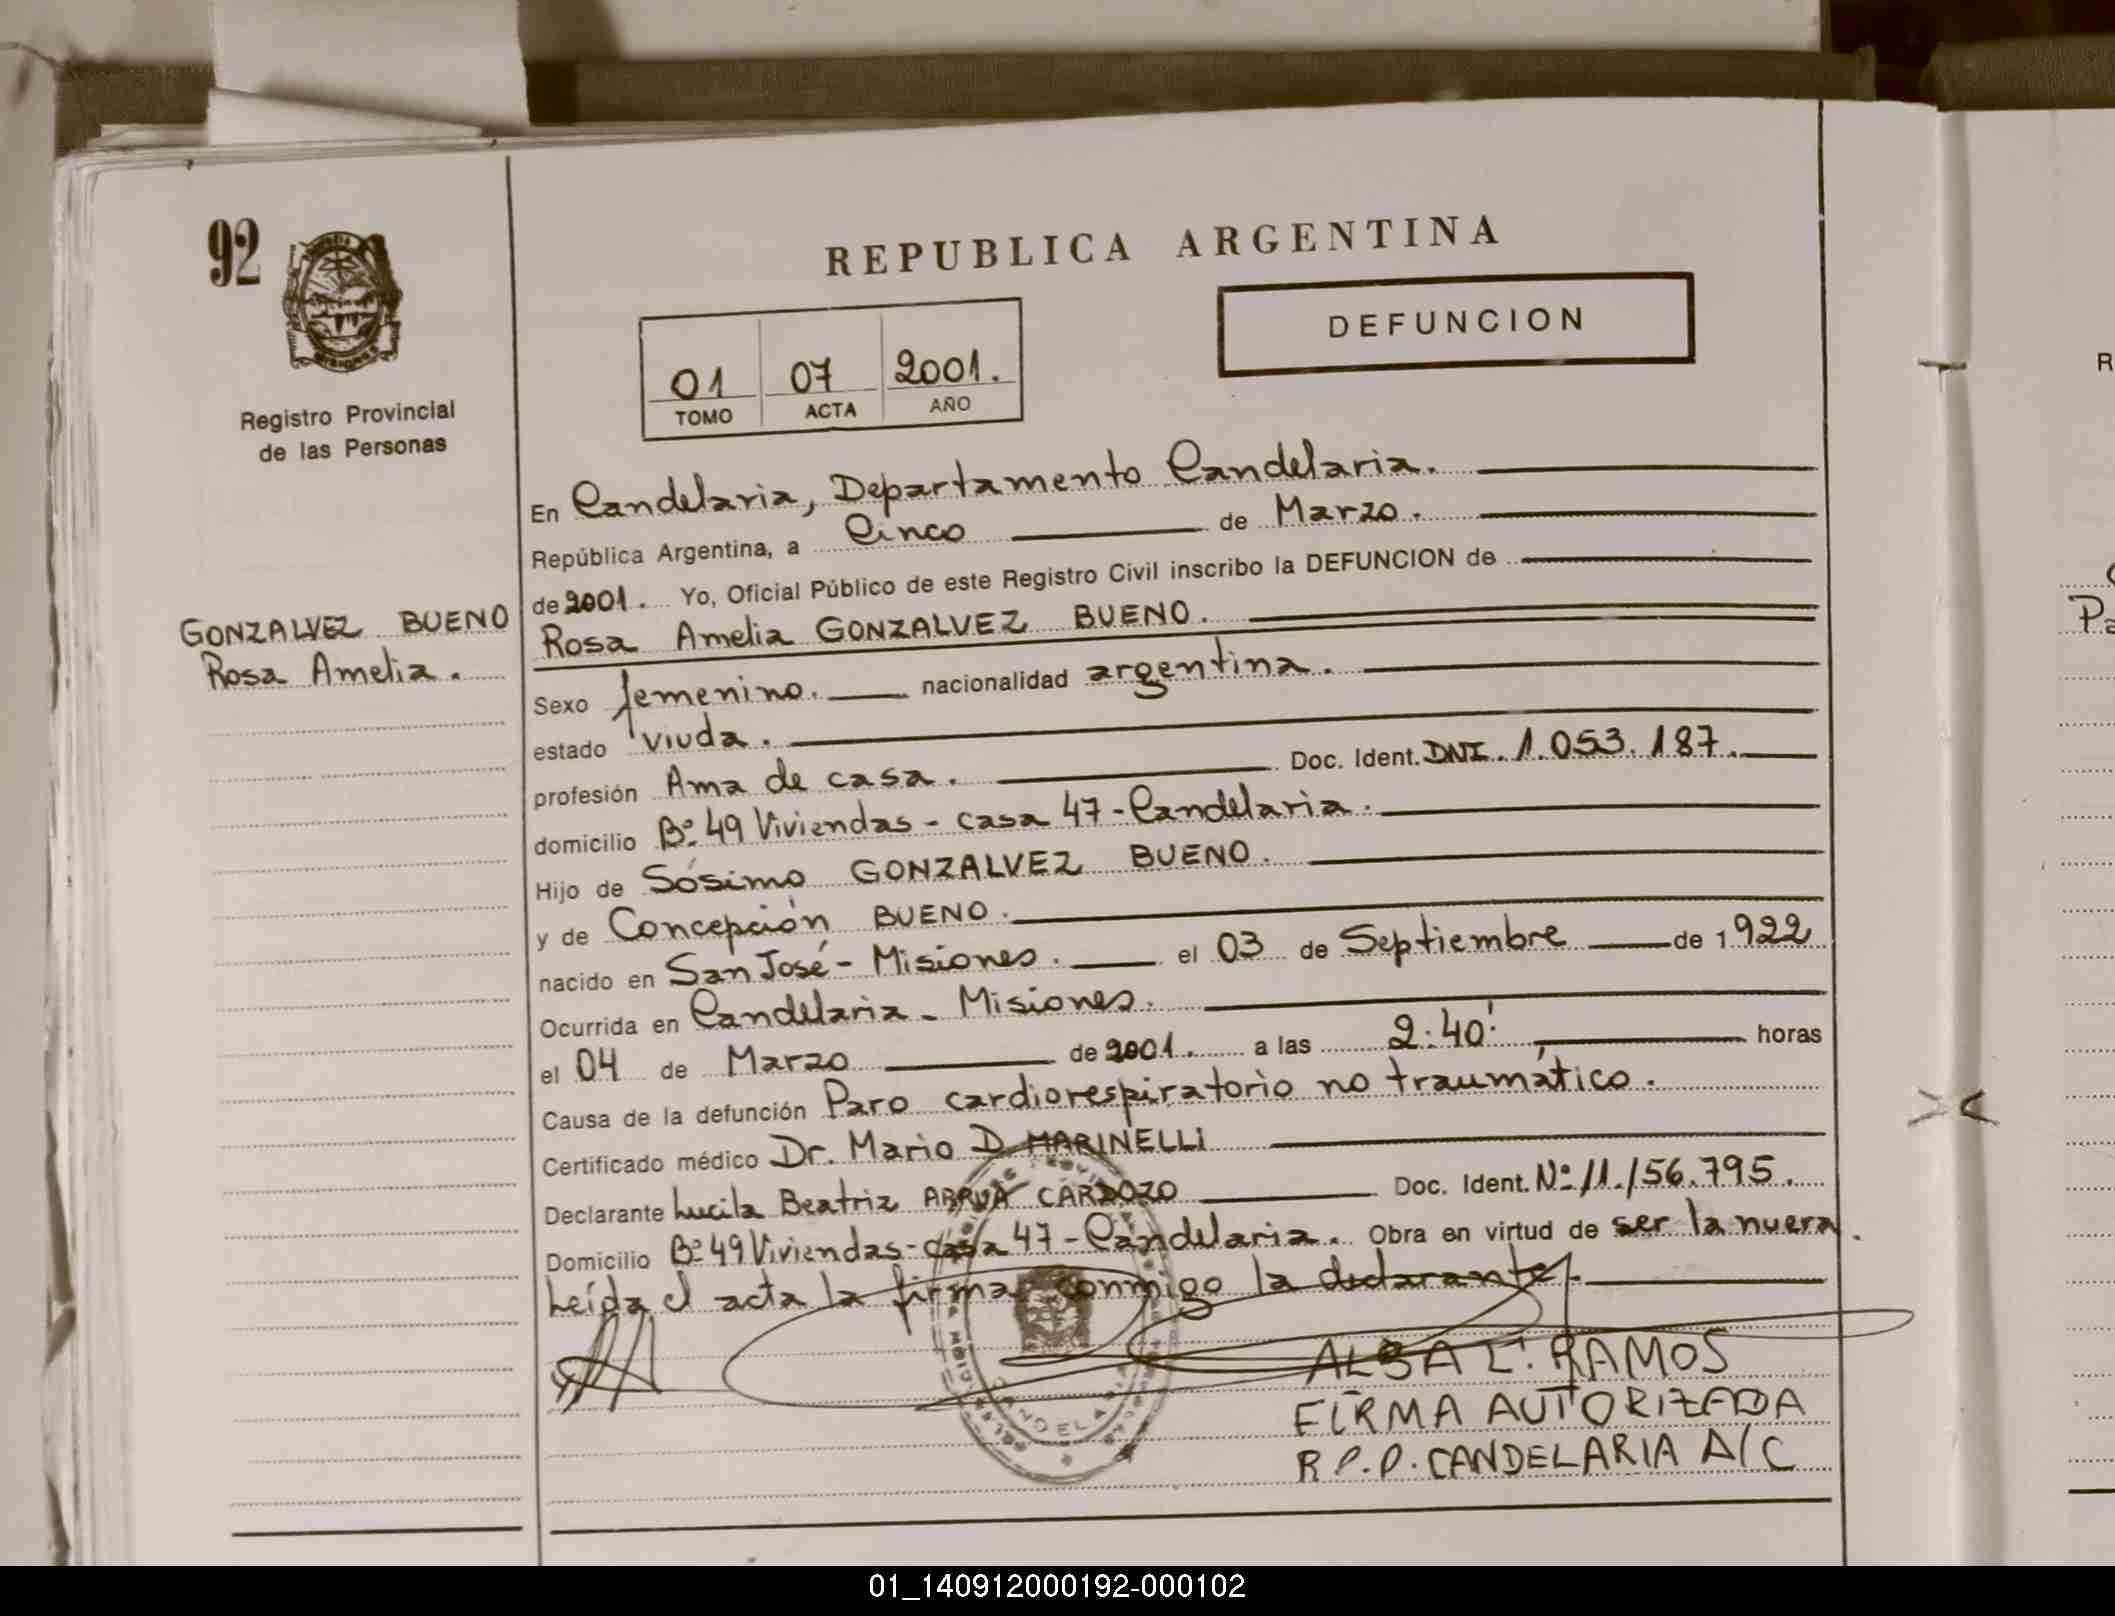 92
REPUBLICA ARGENTINA
DEFUNCION
01 07 2001.
TOMO ACTA AÑO
Registro Provincial
de las Personas
GONZALVEZ BUENO
Rosa Amelia.
En Candelaria, Departamento Candelaria.
República Argentina, a Cinco de Marzo.
de 2001. Yo, Oficial Público de este Registro Civil inscribo la DEFUNCION de
Rosa Amelia GONZALVEZ BUENO.
Sexo femenino. nacionalidad argentina.
estado viuda.
profesión Ama de casa. Doc. Ident. DNI. 1.053.187.
domicilio Bº 49 Viviendas - casa 47 - Candelaria.
Hijo de Sósimo GONZALVEZ BUENO.
y de Concepción BUENO.
nacido en San José - Misiones. el 03 de Septiembre de 1922
Ocurrida en Candelaria - Misiones.
el 04 de Marzo de 2001. a las 2:40' horas
Causa de la defunción Paro cardiorespiratorio no traumático.
Certificado médico Dr. Mario D. MARINELLI
Declarante Lucila Beatriz ARRUA CARDOZO Doc. Ident. Nº 11.156.795.
Domicilio Bº 49 Viviendas - casa 47 - Candelaria. Obra en virtud de ser la nuera.
Leída el acta la firma conmigo la declarante.
CANDELARIA
ALBA L. RAMOS
FIRMA AUTORIZADA
R.P.P. CANDELARIA A/C
R
Pa
01_140912000192-000102